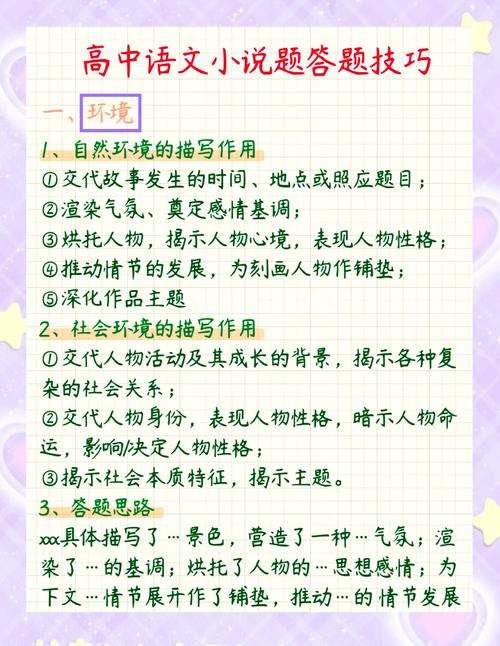 高中语文小说题答题技巧
一、环境
1、自然环境的描写作用
①交代故事发生的时间、地点或照应题目；
②渲染气氛、奠定感情基调；
③烘托人物，揭示人物心境，表现人物性格；
④推动情节的发展，为刻画人物作铺垫；
⑤深化作品主题
2、社会环境的描写作用
①交代人物活动及其成长的背景，揭示各种复
杂的社会关系；
②交代人物身份，表现人物性格，暗示人物命
运，影响/决定人物性格；
③揭示社会本质特征，揭示主题。
3、答题思路
xxx具体描写了…景色，营造了一种…气氛；渲
染了…的基调；烘托了人物的…思想感情；为
下文…情节展开作了铺垫，推动…的情节发展